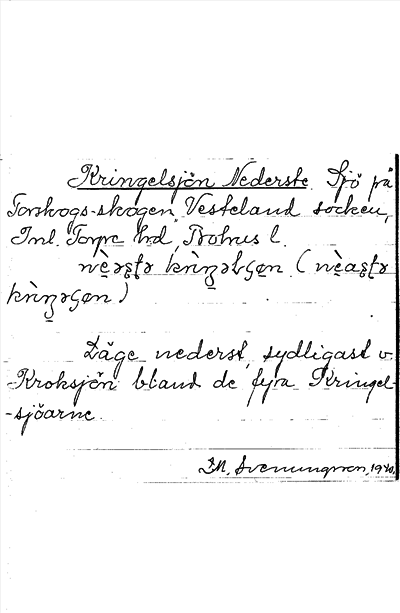 Kringelsjön Nederste. Sjö på
Torskogs-skogen, Vesteland socken,
Inl. Torpe hd, Bohus l.
Läge nederst, sydligast v
Kroksjön bland de fyra Kringel-
-sjöarne.
Svenungsson, 1940.